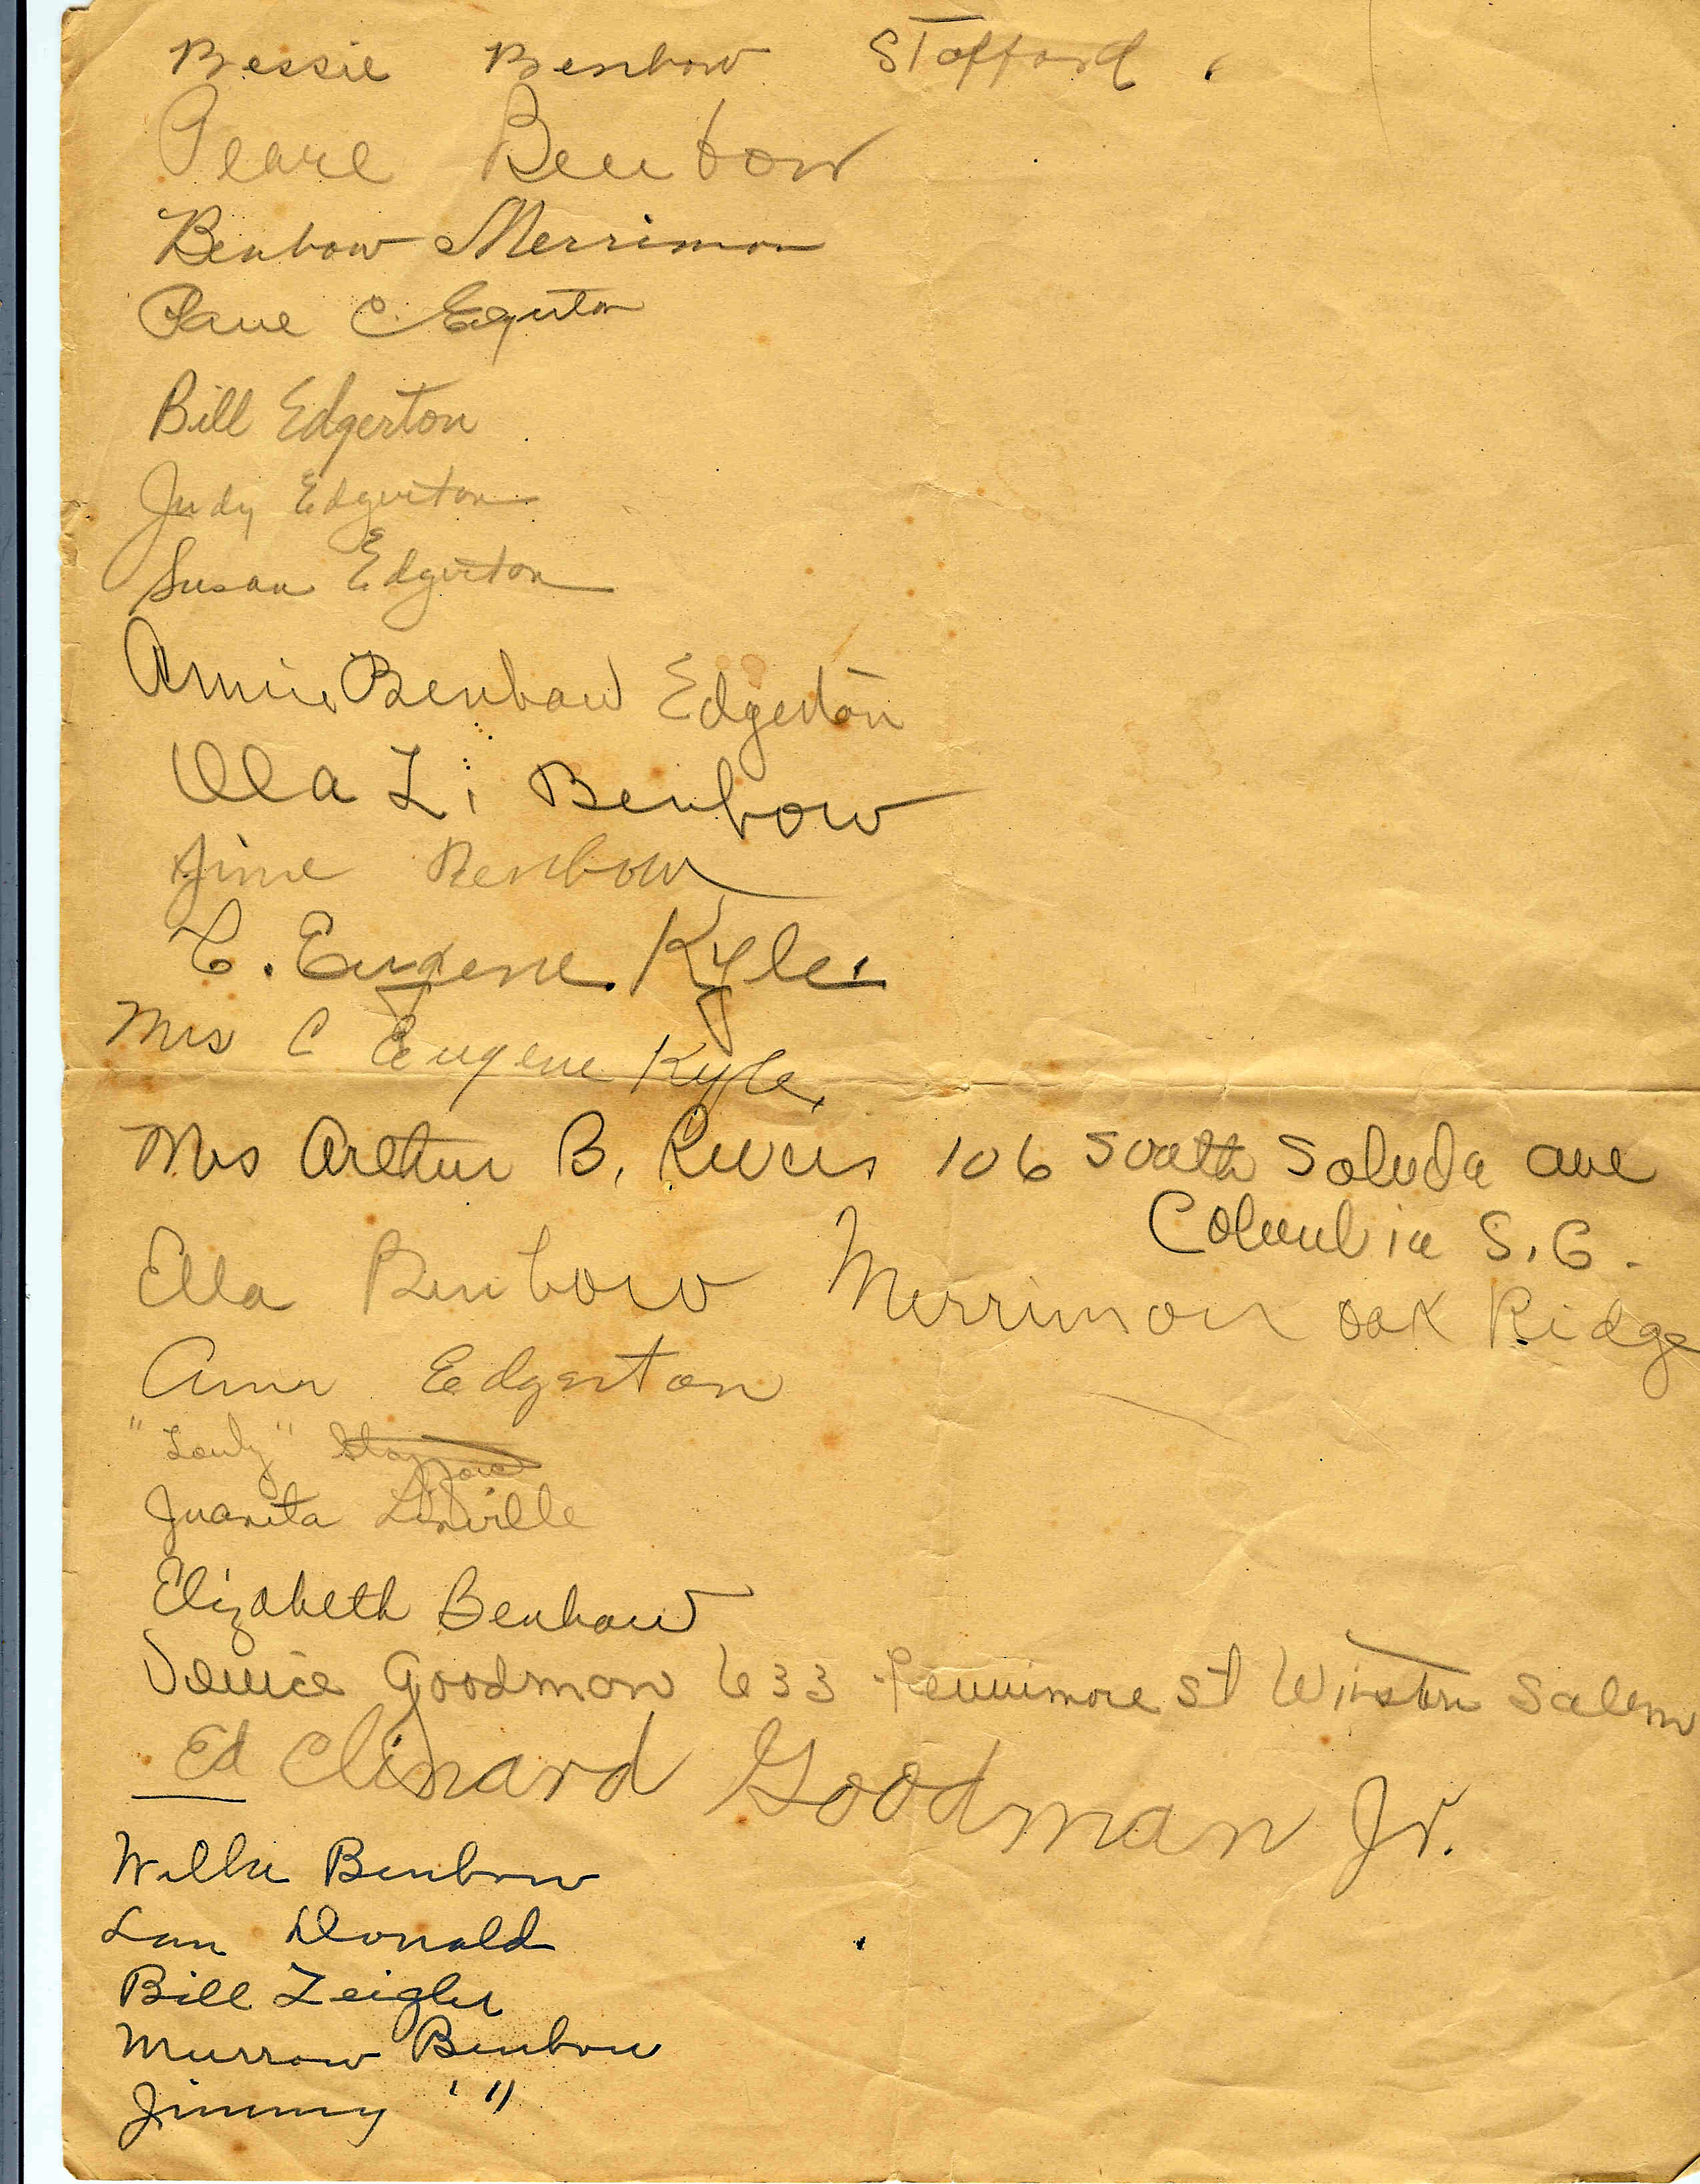 Bessie Benbow Stafford
Pearl Benbow
Benbow Merrimon
C. Edgerton
Bill Edgerton
Judy Edgerton
Susan Edgerton
Annie Benbow Edgerton
Ola L. Benbow
Benbow
C. Eugene Kyle
Mrs C Eugene Kyle
Mrs Arthur B. Rivers 106 South Saluda ave
Columbia S.C.
Ella Benbow Merrimon Oak Ridge
Edgerton
Juanita Linville
Elizabeth Benbow
Goodman 633 St Winston Salem
Ed Clinard Goodman Jr.
Willie Benbow
Donald
Bill Zeigler
Murrow Benbow
Jimmy " "